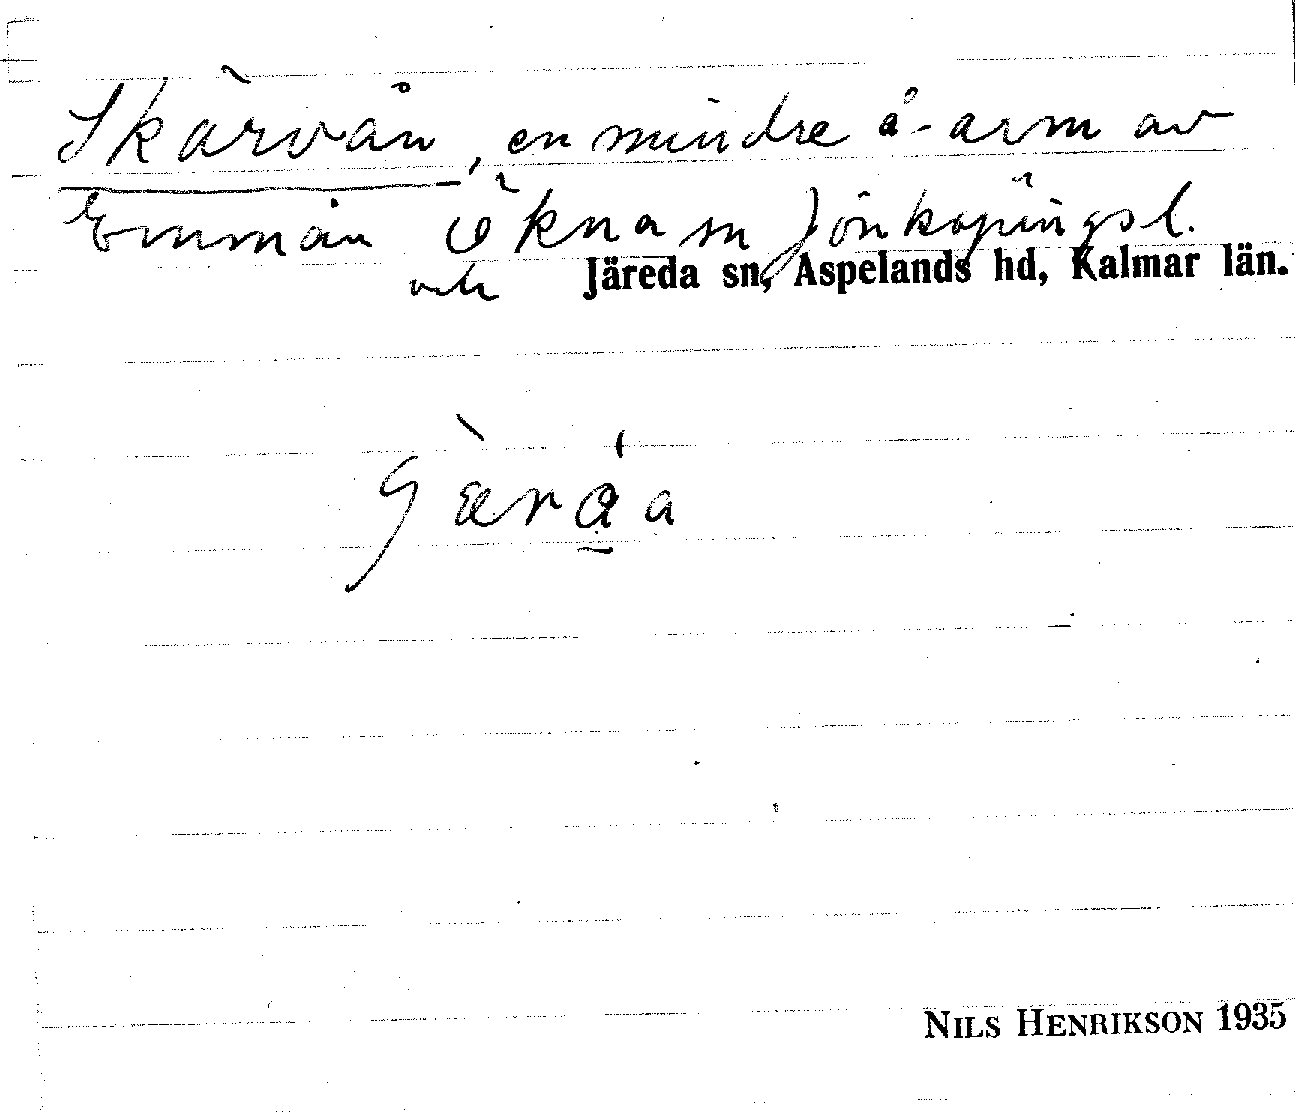 Skärvån, en mindre å-arm av
Emmån Ökna sn Jönköpingsl.
och Järeda sn, Aspelands hd, Kalmar län.
NILS HENRIKSON 1935